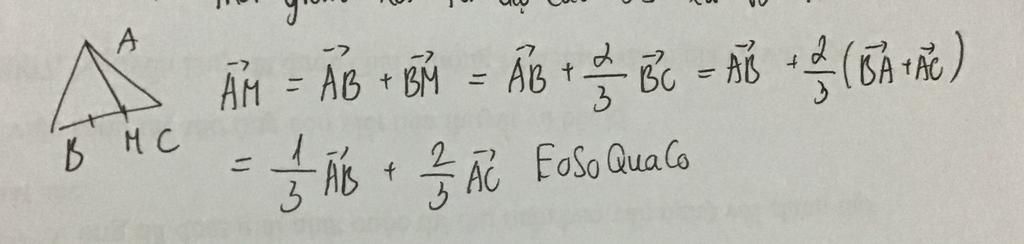 A
B M C
AM⃗ = AB⃗ + BM⃗ = AB⃗ + 2/3 BC⃗ = AB⃗ + 2/3 (BA⃗ + AC⃗)
= 1/3 AB⃗ + 2/3 AC⃗ EoSoQuaCo